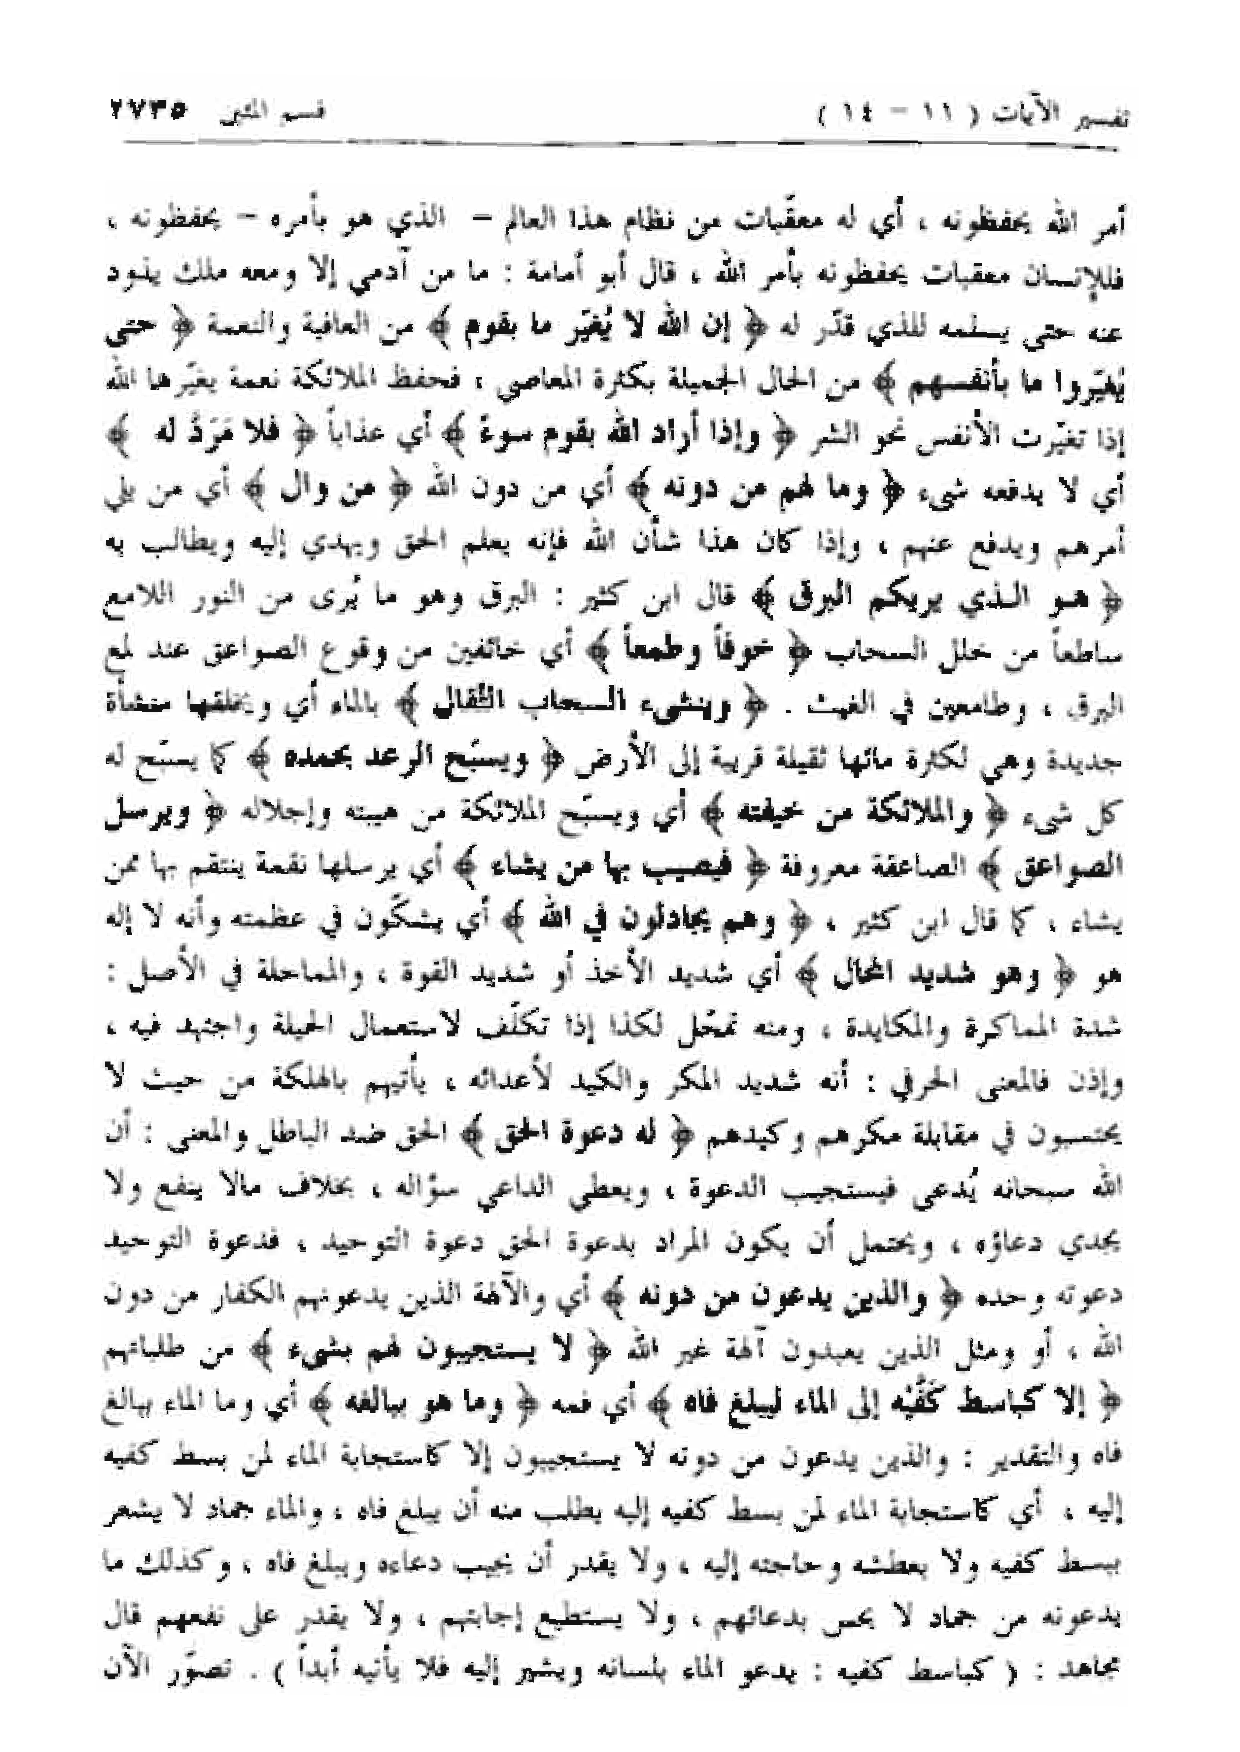 تفسير الآيات ( ١١ - ١٤ ) قسم المئين ٢٧٣٥
أمر الله يحفظونه ، أي له معقّبات من نظام هذا العالم - الذي هو بأمره - يحفظونه ،
فللإنسان معقبات يحفظونه بأمر الله ، قال أبو أمامة : ما من آدمي إلا ومعه ملك يذود
عنه حتى يسلمه للذي قدّر له ﴿ إن الله لا يُغيّر ما بقوم ﴾ من العافية والنعمة ﴿ حتى
يُغيّروا ما بأنفسهم ﴾ من الحال الجميلة بكثرة المعاصي ، فحفظ الملائكة نعمة يغيّرها الله
إذا تغيّرت الأنفس نحو الشر ﴿ وإذا أراد الله بقوم سوءً ﴾ أي عذاباً ﴿ فلا مَرَدَّ له ﴾
أي لا يدفعه شيء ﴿ وما لهم من دونه ﴾ أي من دون الله ﴿ من وال ﴾ أي من يلي
أمرهم ويدفع عنهم ، وإذا كان هذا شأن الله فإنه يعلم الحق ويهدي إليه ويطالب به
﴿ هـو الـذي يريكم البرق ﴾ قال ابن كثير : البرق وهو ما يُرى من النور اللامع
ساطعاً من خلل السحاب ﴿ خوفاً وطمعاً ﴾ أي خائفين من وقوع الصواعق عند لمع
البرق ، وطامعين في الغيث . ﴿ وينشىء السحاب الثقال ﴾ بالماء أي ويخلقها منشأة
جديدة وهي لكثرة مائها ثقيلة قريبة إلى الأرض ﴿ ويسبّح الرعد بحمده ﴾ كما يسبّح له
كل شيء ﴿ والملائكة من خيفته ﴾ أي ويسبّح الملائكة من هيبته وإجلاله ﴿ ويرسل
الصواعق ﴾ الصاعقة معروفة ﴿ فيصيب بها من يشاء ﴾ أي يرسلها نقمة ينتقم بها ممن
يشاء ، كما قال ابن كثير ، ﴿ وهم يجادلون في الله ﴾ أي يشكّون في عظمته وأنه لا إله
هو ﴿ وهو شديد المحال ﴾ أي شديد الأخذ أو شديد القوة ، والمماحلة في الأصل :
شدة المماكرة والمكايدة ، ومنه تمحّل لكذا إذا تكلّف لاستعمال الحيلة واجتهد فيه ،
وإذن فالمعنى الحرفي : أنه شديد المكر والكيد لأعدائه ، يأتيهم بالهلكة من حيث لا
يحتسبون في مقابلة مكرهم وكيدهم ﴿ له دعوة الحق ﴾ الحق ضد الباطل والمعنى : أن
الله سبحانه يُدعى فيستجيب الدعوة ، ويعطي الداعي سؤاله ، بخلاف مالا ينفع ولا
يجدي دعاؤه ، ويحتمل أن يكون المراد بدعوة الحق دعوة التوحيد ، فدعوة التوحيد
دعوته وحده ﴿ والذين يدعون من دونه ﴾ أي والآلهة الذين يدعونهم الكفار من دون
الله ، أو ومثل الذين يعبدون آلهة غير الله ﴿ لا يستجيبون لهم بشيء ﴾ من طلباتهم
﴿ إلا كباسط كَفَّيْه إلى الماء ليبلغ فاه ﴾ أي فمه ﴿ وما هو ببالغه ﴾ أي وما الماء ببالغ
فاه والتقدير : والذين يدعون من دونه لا يستجيبون إلا كاستجابة الماء لمن بسط كفيه
إليه ، أي كاستجابة الماء لمن بسط كفيه إليه يطلب منه أن يبلغ فاه ، والماء جماد لا يشعر
ببسط كفيه ولا بعطشه وحاجته إليه ، ولا يقدر أن يجيب دعاءه ويبلغ فاه ، وكذلك ما
يدعونه من جماد لا يحس بدعائهم ، ولا يستطيع إجابتهم ، ولا يقدر على نفعهم قال
مجاهد : ( كباسط كفيه : يدعو الماء بلسانه ويشير إليه فلا يأتيه أبداً ) . تصوّر الآن